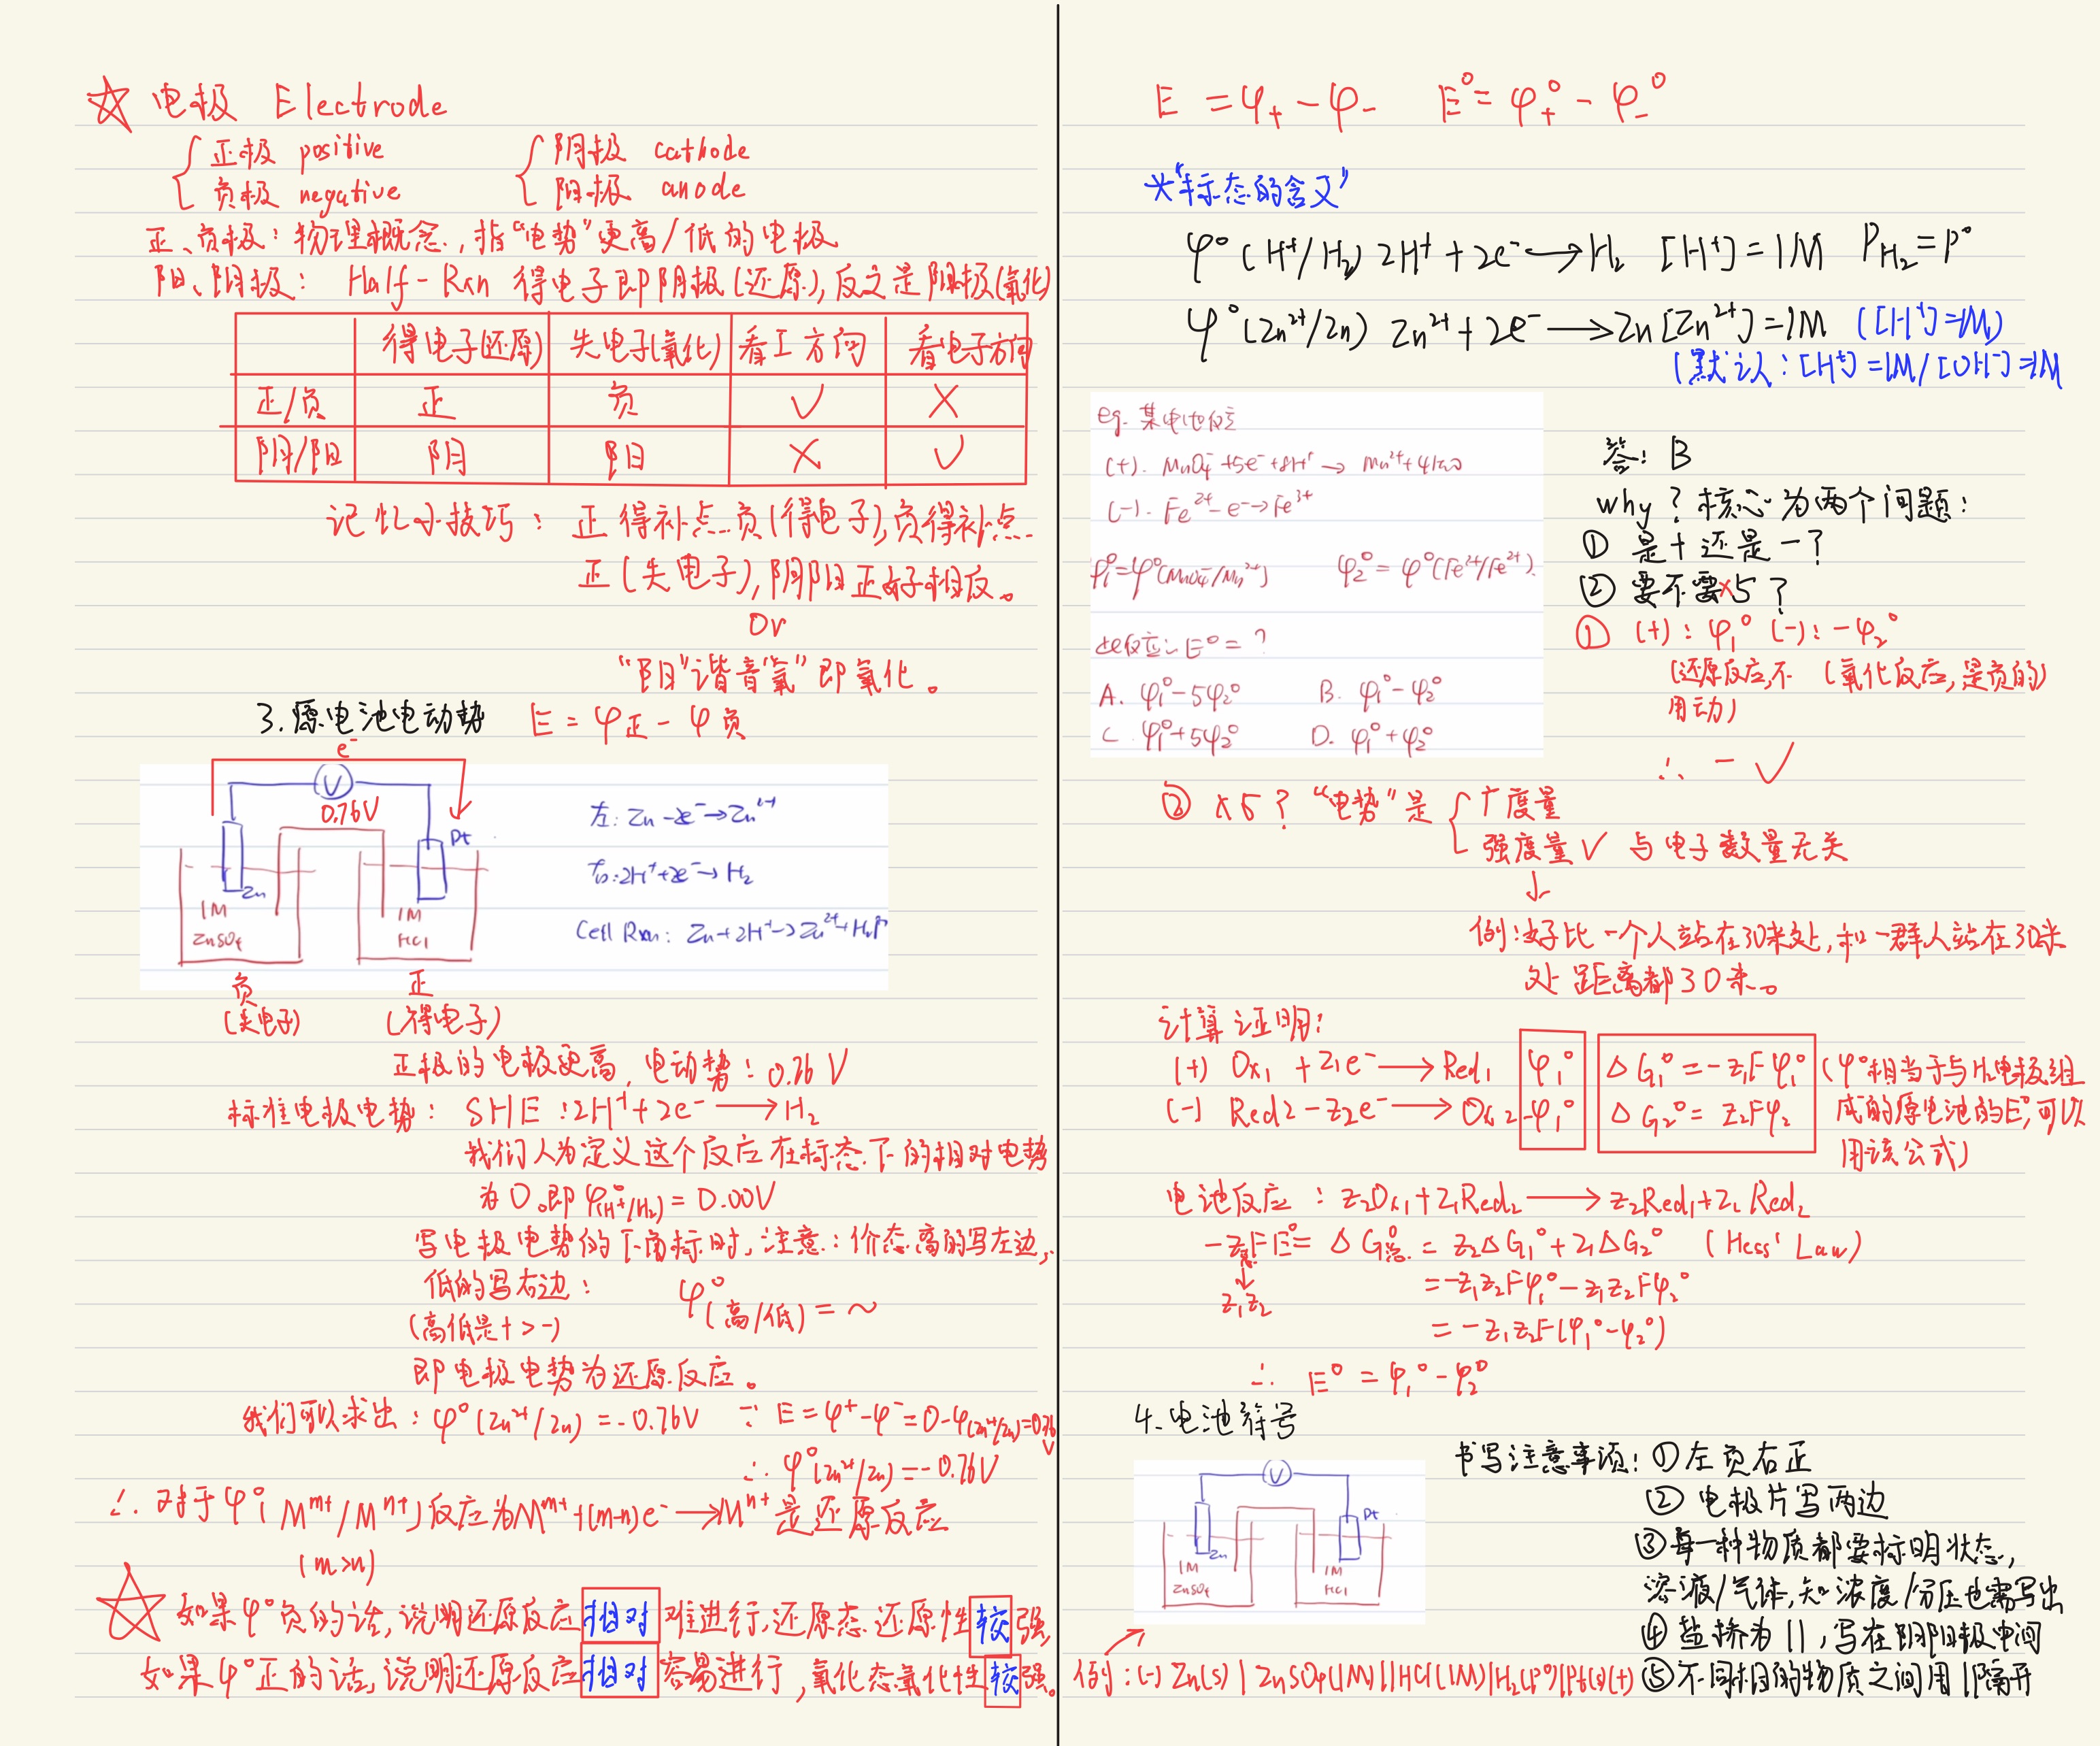 ☆ 电极 Electrode
{ 正极 positive
负极 negative
{ 阴极 cathode
阳极 anode
正、负极：物理概念，指"电势"更高/低的电极
阳、阴极： Half-Rxn 得电子即阴极(还原),反之是阳极(氧化)
得电子(还原) 失电子(氧化) 看I方向 看电子方向
正/负 正 负 √ ×
阴/阳 阴 阳 × √
记忆小技巧： 正得补点负(得电子),负得补点
正(失电子),阴阳正好相反。
or
"阳"谐音"氧"即氧化。
3.原电池电动势 E = φ正 - φ负
e⁻
V
0.76V
Zn
Pt
1M
ZnSO₄
1M
HCl
左: Zn - 2e⁻ → Zn²⁺
右: 2H⁺ + 2e⁻ → H₂
Cell Rxn: Zn + 2H⁺ → Zn²⁺ + H₂↑
负
(失电子)
正
(得电子)
正极的电极更高,电动势: 0.76 V
标准电极电势: SHE : 2H⁺ + 2e⁻ ⟶ H₂
我们人为定义这个反应在标态下的相对电势
为0.即 φ°(H⁺/H₂) = 0.00V
写电极电势的下角标时,注意:价态高的写左边,
低的写右边: φ°(高/低) = ~
(高低是+ > -)
即电极电势为还原反应。
我们可以求出: φ°(Zn²⁺/Zn) = -0.76V ∵ E = φ⁺ - φ⁻ = 0 - φ(Zn²⁺/Zn) = 0.76V
∴ φ°(Zn²⁺/Zn) = -0.76V
∴ 对于φ°( M^m+/M^n+ )反应为M^m+ + (m-n)e⁻ ⟶ M^n+ 是还原反应
(m>n)
☆ 如果φ°负的话,说明还原反应相对难进行,还原态还原性较强,
如果φ°正的话,说明还原反应相对容易进行,氧化态氧化性较强。
E = φ₊ - φ₋ E° = φ₊° - φ₋°
*"标态的含义"
φ°(H⁺/H₂) 2H⁺ + 2e⁻ ⟶ H₂ [H⁺] = 1M P_H₂ = P°
φ°(Zn²⁺/Zn) Zn²⁺ + 2e⁻ ⟶ Zn [Zn²⁺] = 1M ([H⁺]=1M)
(默认: [H⁺]=1M/[OH⁻]=1M
eg. 某电池反应
(+). MnO₄⁻ + 5e⁻ + 8H⁺ → Mn²⁺ + 4H₂O
(-). Fe²⁺ - e⁻ → Fe³⁺
φ₁° = φ°(MnO₄⁻/Mn²⁺) φ₂° = φ°(Fe³⁺/Fe²⁺).
此反应之E° = ?
A. φ₁° - 5φ₂° B. φ₁° - φ₂°
C. φ₁° + 5φ₂° D. φ₁° + φ₂°
答: B
why ? 核心为两个问题:
① 是+还是-?
② 要不要×5 ?
① (+): φ₁° (-): -φ₂°
(还原反应,不用动) (氧化反应,是负的)
∴ - √
② ×5 ? "电势"是 { 广度量
强度量 √ 与电子数量无关
↓
例:好比一个人站在30米处,和一群人站在30米
处距离都30米。
计算证明:
(+) Ox₁ + z₁e⁻ ⟶ Red₁ φ₁° ΔG₁° = -z₁Fφ₁° (φ°相当于与H₂电极组
(-) Red2 - z₂e⁻ ⟶ Ox₂ -φ₁° ΔG₂° = z₂Fφ₂ 成的原电池的E°,可以
用该公式)
电池反应 : z₂Ox₁ + z₁Red₂ ⟶ z₂Red₁ + z₁Red₂
-z总FE° = ΔG总° = z₂ΔG₁° + z₁ΔG₂° (Hess' Law)
↓
z₁z₂
= -z₁z₂Fφ₁° - z₁z₂Fφ₂°
= -z₁z₂F(φ₁° - φ₂°)
∴ E° = φ₁° - φ₂°
4.电池符号
V
Zn
Pt
1M
ZnSO₄
1M
HCl
书写注意事项: ①左负右正
② 电极片写两边
③每一种物质都要标明状态,
溶液/气体,知浓度/分压也需写出
④ 盐桥为 ||,写在阴阳极中间
例: (-) Zn(s) | ZnSO₄(1M) || HCl(1M) | H₂(P°) | Pt(s) (+) ⑤不同相的物质之间用|隔开